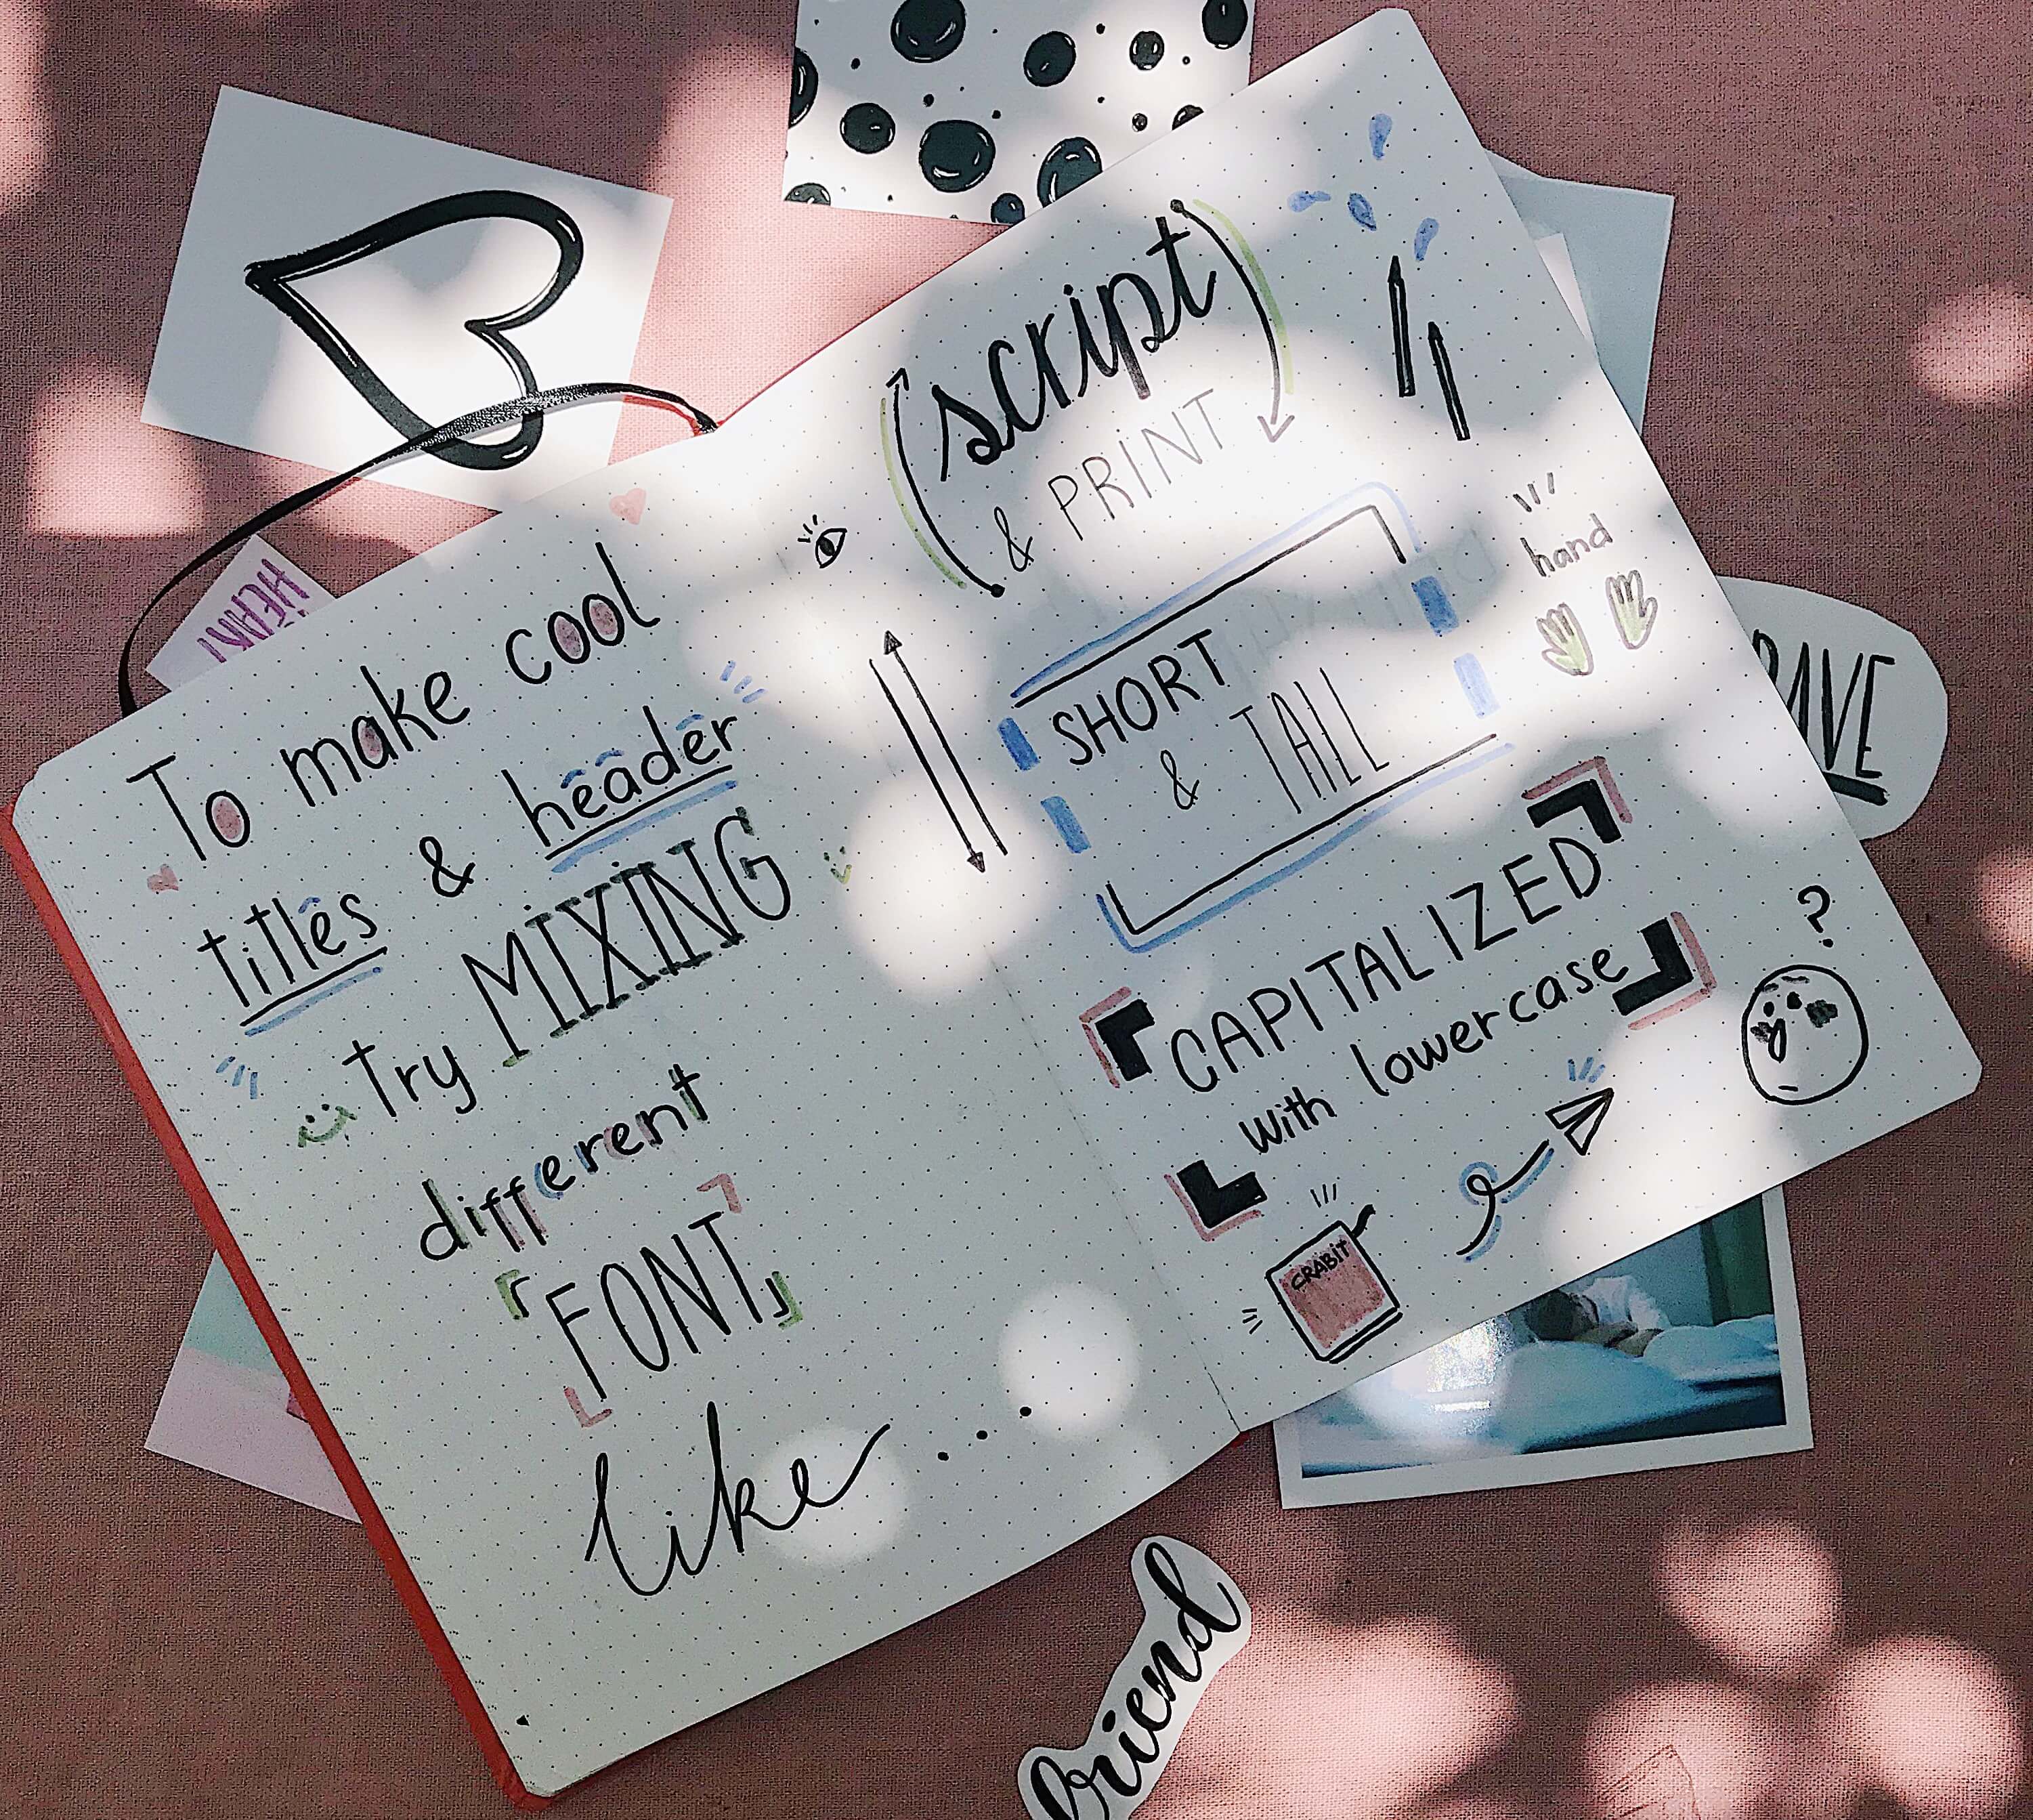 To make cool
titles & header
Try MIXING
different
FONT
like...
script
& PRINT
hand
SHORT
& TALL
CAPITALIZED
with lowercase
?
CRABIT
HEART
friend